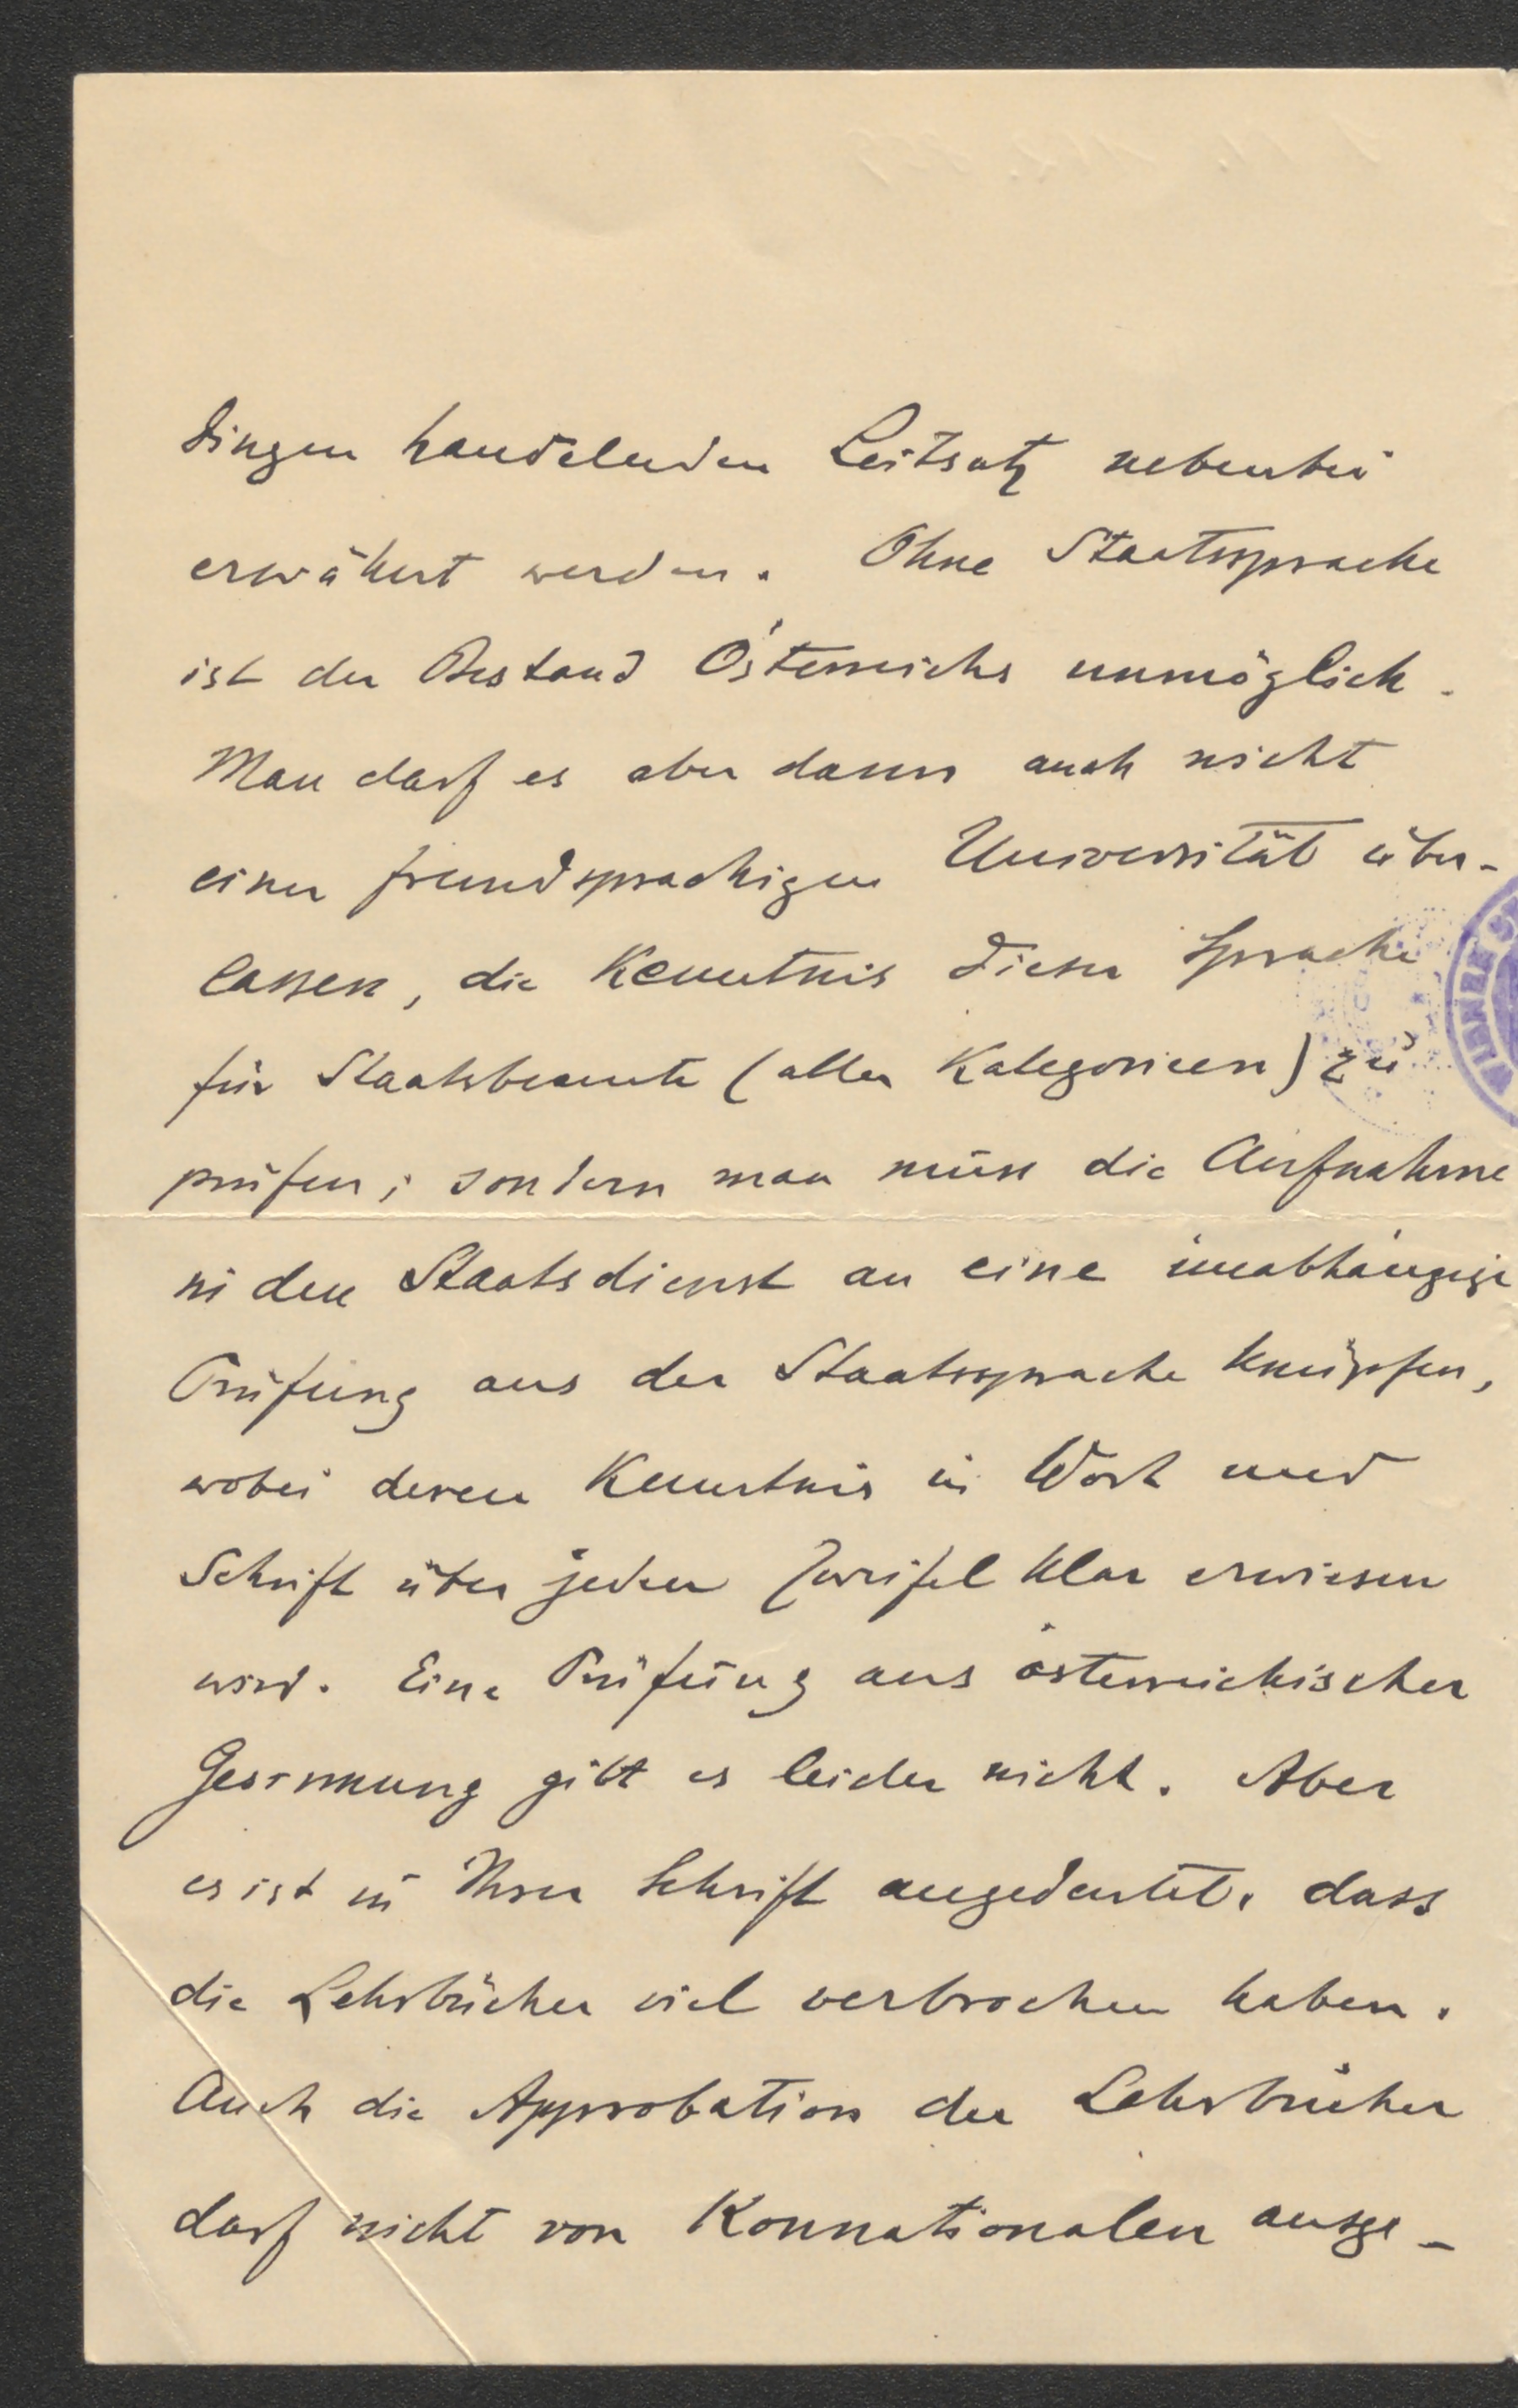 dingen handelnden Leitsatz nebenbei
erwähnt werden. Ohne Staatssprache
ist der Bestand Österreichs unmöglich.
Man darf es aber dann auch nicht
einer fremdsprachigen Universität über-
lassen, die Kenntnis dieser Sprache
für Staatsbeamte (aller Kategorieen) zu
prüfen; sondern man muss die Aufnahme
in den Staatsdienst an eine unabhängige
Prüfung aus der Staatssprache knüpfen,
wobei deren Kenntnis in Wort und
Schrift über jeden Zweifel klar erwiesen
wird. Eine Prüfung aus österreichischer
Gesinnung gibt es leider nicht. Aber
es ist in Ihrer Schrift angedeutet, dass
die Lehrbücher viel verbrochen haben.
Auch die Approbation der Lehrbücher
darf nicht von Konnationalen ausge-